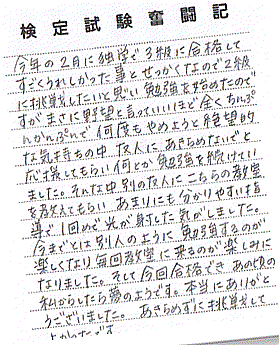 検定試験奮闘記
今年の2月に独学で3級に合格して
すごくうれしかった事とせっかくなので2級
に挑戦したいと思い勉強を始めたので
すがまさに野望と言っていいほど全くちんぷ
んかんぷんで何度もやめようと絶望的
な気持ちの中友人にあきらめないでと
励ましてもらい何とか勉強を続けてい
ました。そんな中別の友人にこちらの教室
を教えてもらいあまりにも分かりやすい指
導で1回めで光が射した気がしました。
今までとは別人のように勉強するのが
楽しくなり毎回教室に来るのが楽しみに
なりました。そして今回合格できあの頃の
私からしたら夢のようです。本当にありがと
うございました。あきらめずに挑戦して
よかったです